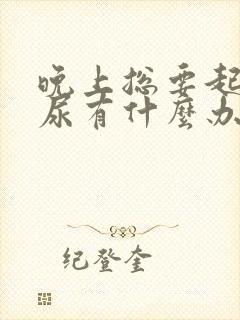 晚上总要起
尿有什麼办
纪登奎